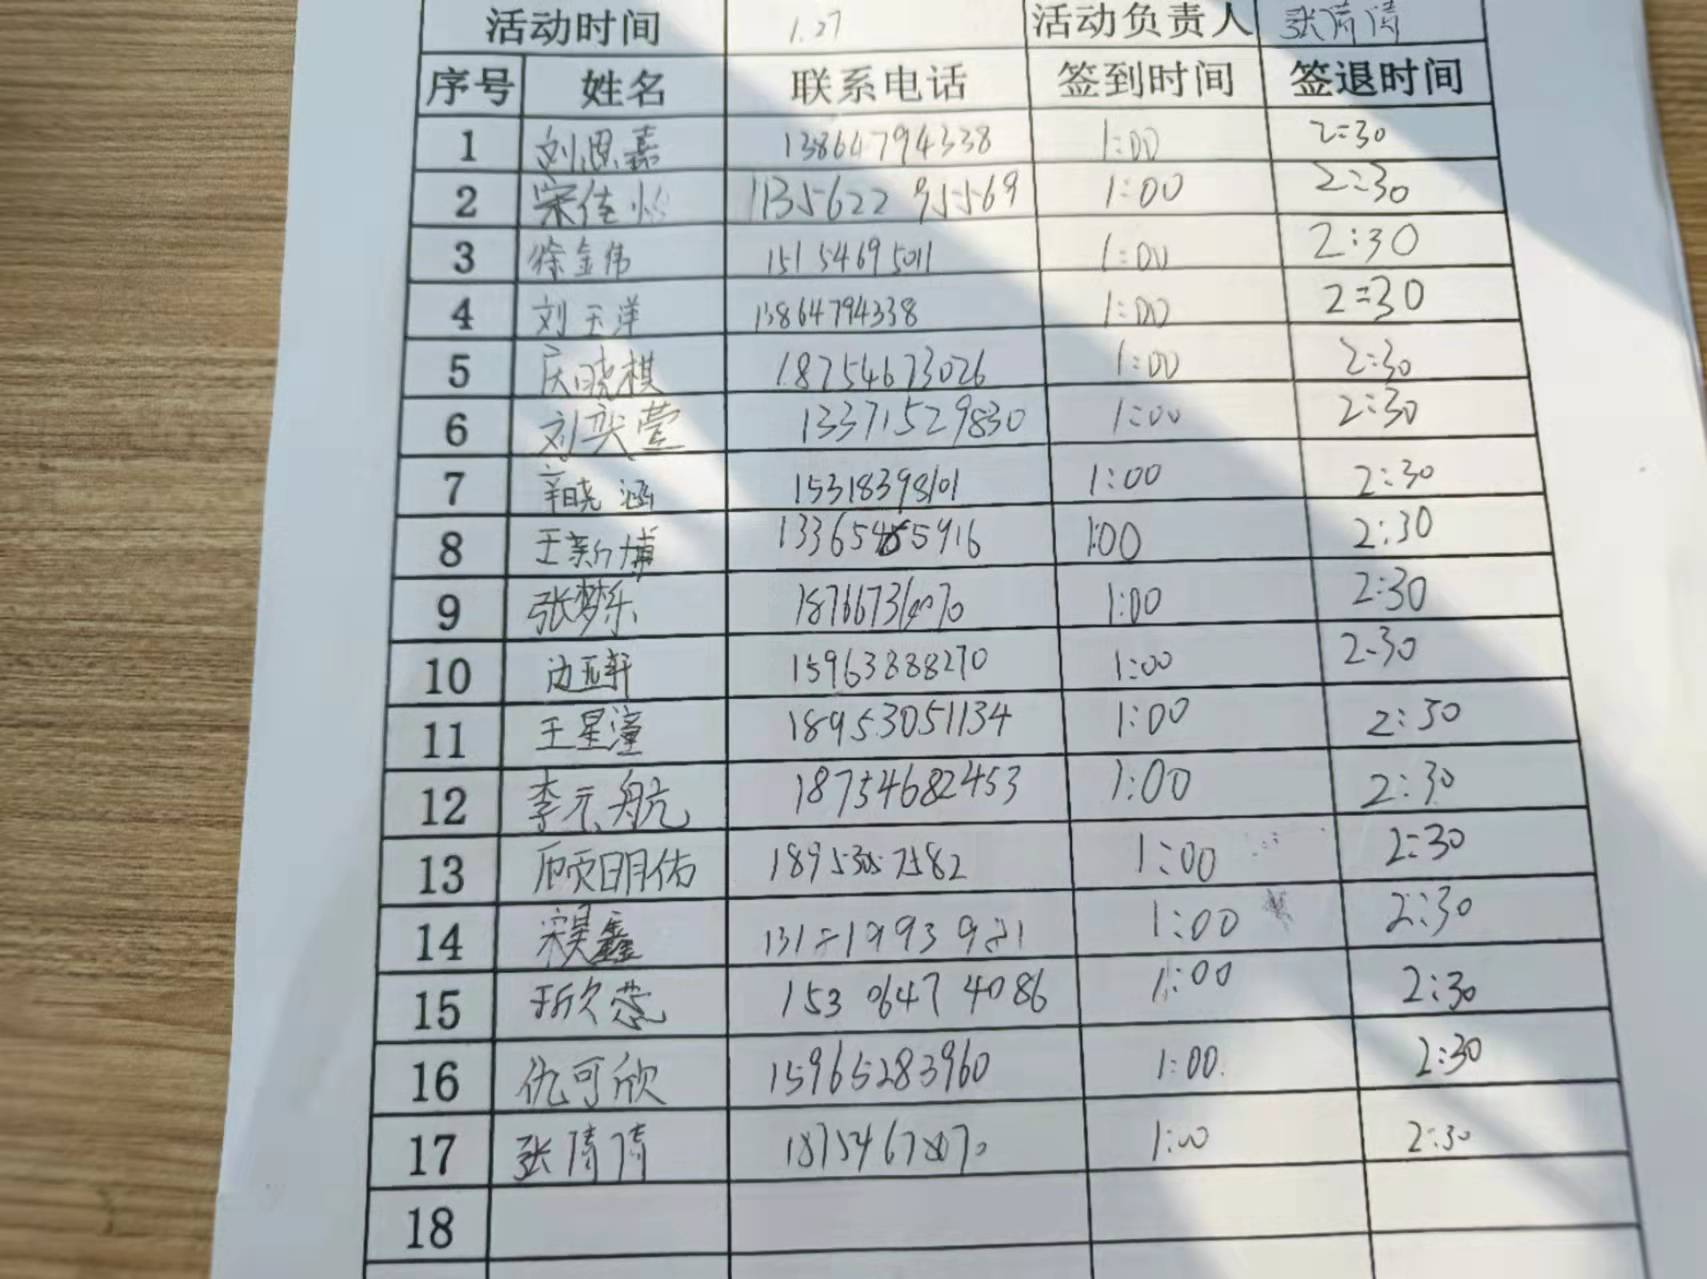 活动时间 1.27 活动负责人 张倩倩
序号 姓名 联系电话 签到时间 签退时间
1 刘恩嘉 13864794338 1:00 2:30
2 宋佳 1:00 2:30
3 徐金伟 15154695011 1:00 2:30
4 刘玉洋 13864794338 1:00 2:30
5 晓棋 18754673026 1:00 2:30
6 刘奕萱 13371529830 1:00 2:30
7 辛晓涵 15318398101 1:00 2:30
8 王新博 1:00 2:30
9 张梦乐 1:00 2:30
10 边亚轩 15963888270 1:00 2:30
11 王星潼 18953051134 1:00 2:30
12 李示航 18754682453 1:00 2:30
13 顾明佑 18953057582 1:00 2:30
14 宋昊鑫 1:00 2:30
15 153 0647 4086 1:00 2:30
16 仇可欣 15965283960 1:00 2:30
17 张倩倩 1:00 2:30
18